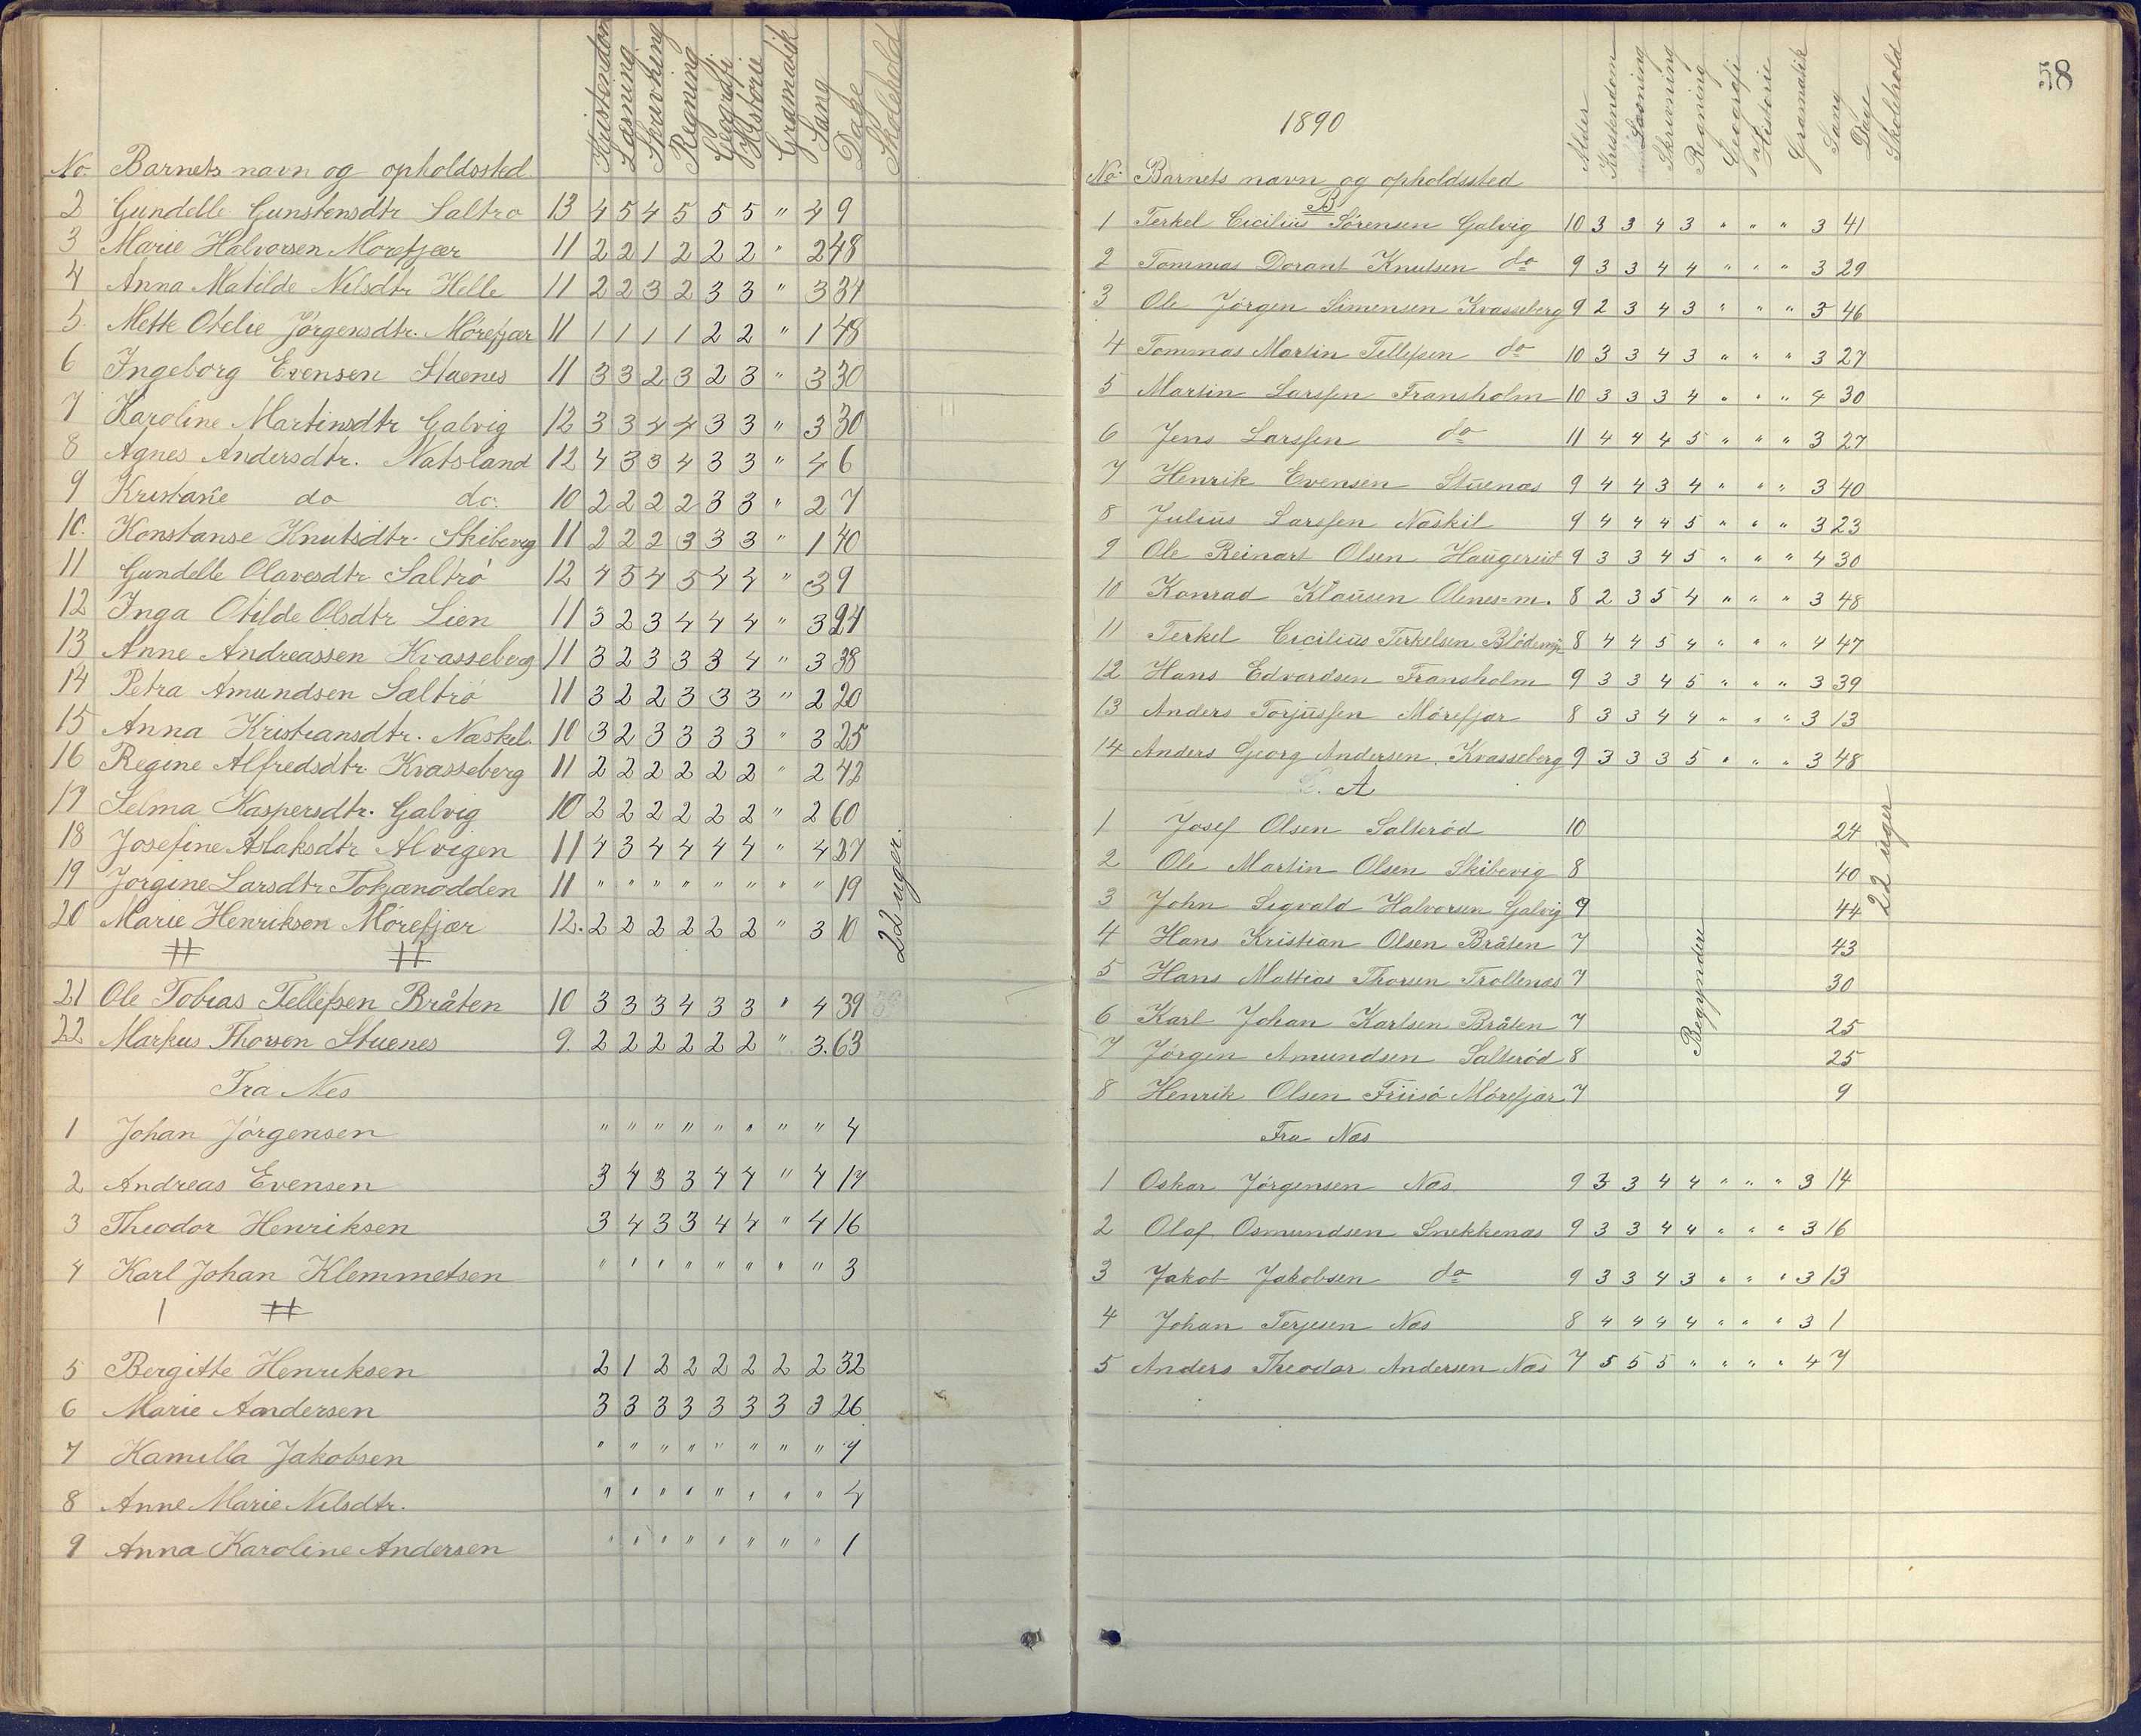 Kristendom Læsning Skrivning Regning Geografi Historie Gramatik Sang Dage Skolehold
No. Barnets navn og opholdssted.
2 Gundelle Gunstensdtr Saltrø 13 4 5 4 5 5 5 " 4 9
3 Marie Halvorsen Mørefjær 11 2 2 1 2 2 2 " 2 48
4 Anna Matilde Nilsdtr. Helle 11 2 2 3 2 3 3 " 3 34
5. Mette Otelie Jørgensdtr. Mørefjær 11 1 1 1 1 2 2 " 1 48
6 Ingeborg Evensen Stuenes 11 3 3 2 3 2 3 " 3 30
7 Karoline Martinsdtr Galvig 12 3 3 4 4 3 3 " 3 30
8 Agnes Andersdtr. Natsland 12 4 3 3 4 3 3 " 4 6
9 Kristane do do. 10 2 2 2 2 3 3 " 2 7
10. Konstanse Knutsdtr. Skibevig 11 2 2 2 3 3 3 " 1 40
11 Gundelle Olavesdtr Saltrø 12 4 5 4 5 4 4 " 3 9
12 Inga Otilde Olsdtr Lien 11 3 2 3 4 4 4 " 3 24
13 Anne Andreassen Kvasseberg 11 3 2 3 3 3 4 " 3 38
14 Petra Amundsen Sæltrø 11 3 2 2 3 3 3 " 2 20
15 Anna Kristiansdtr. Næskel. 10 3 2 3 3 3 3 " 3 25
16 Regine Alfredsdtr. Kvasseberg 11 2 2 2 2 2 2 " 2 42
17 Selma Kaspersdtr. Galvig 10 2 2 2 2 2 2 " 2 60
18 Josefine Aslaksdtr Alvigen 11 4 3 4 4 4 4 " 4 37
19 Jørgine Larsdtr Tokjænodden 11 " " " " " " " " 19
20 Marie Henriksen Mörefjær 12. 2 2 2 2 2 2 " 3 10
22 uger.
21 Ole Tobias Tellefsen Bråten 10 3 3 3 4 3 3 " 4 39
22 Markus Thorsen Stuenes 9. 2 2 2 2 2 2 " 3. 63
Fra Nes
1 Johan Jörgensen " " " " " " " " 4
2 Andreas Evensen 3 4 3 3 4 4 " 4 17
3 Theodor Henriksen 3 4 3 3 4 4 " 4 16
4 Karl Johan Klemmetsen " " " " " " " " 3
5 Bergitte Henriksen 2 1 2 2 2 2 2 2 32
6 Marie Andersen 3 3 3 3 3 3 3 3 26
7 Kamilla Jakobsen " " " " " " " " 7
8 Anne Marie Nilsdtr. " " " " " " " " 4
9 Anna Karoline Andersen " " " " " " " " 1
58
1890
Alder Kristendom Læsning Skrivning Regning Geografi Historie Gramatik Sang Dage Skolehold
No. Barnets navn og opholdssted
B
1 Terkel Cicilius Sörensen Galvig 10 3 3 4 3 " " " 3 41
2 Tommas Dorant Knutsen do 9 3 3 4 4 " " " 3 29
3 Ole Jörgen Simensen Kvasseberg 9 2 3 4 3 " " " 3 46
4 Tommas Martin Tellefsen do 10 3 3 4 3 " " " 3 27
5 Martin Larssen Fransholm 10 3 3 3 4 " " " 4 30
6 Jens Larssen do 11 4 4 4 5 " " " 3 27
7 Henrik Evensen Stuenæs 9 4 4 3 4 " " " 3 40
8 Julius Larssen Næskil 9 4 4 4 5 " " " 3 23
9 Ole Reinart Olsen Haugerud 9 3 3 4 5 " " " 4 30
10 Konrad Klausen Olenes-m. 8 2 3 5 4 " " " 3 48
11 Terkel Cicilius Terkelsen 8 4 4 5 4 " " " 4 47
12 Hans Edvardsen Fransholm 9 3 3 4 5 " " " 3 39
13 Anders Torjussen Mörefjær 8 3 3 4 4 " " " 3 13
14 Anders Georg Andersen, Kvasseberg 9 3 3 3 5 " " " 3 48
A
1 Josef Olsen Salteröd 10 24
2 Ole Martin Olsen Skibevig 8 40
3 John Segvald Halvorsen Galvig 9 44
22 uger
4 Hans Kristian Olsen Bråten 7 43
5 Hans Mattias Thorsen Trollenæs 7 30
Begyndere
6 Karl Johan Karlsen Bråten 7 25
7 Jörgen Amundsen Salteröd 8 25
8 Henrik Olsen Friisö Mörefjær 7 9
Fra Næs
1 Oskar Jörgensen Næs 9 3 3 4 4 " " " 3 14
2 Olaf Osmundsen Snekkenæs 9 3 3 4 4 " " " 3 16
3 Jakob Jakobsen do 9 3 3 4 3 " " " 3 13
4 Johan Terjesen Næs 8 4 4 4 4 " " " 3 1
5 Anders Theodor Andersen Næs 7 5 5 5 " " " " 4 7